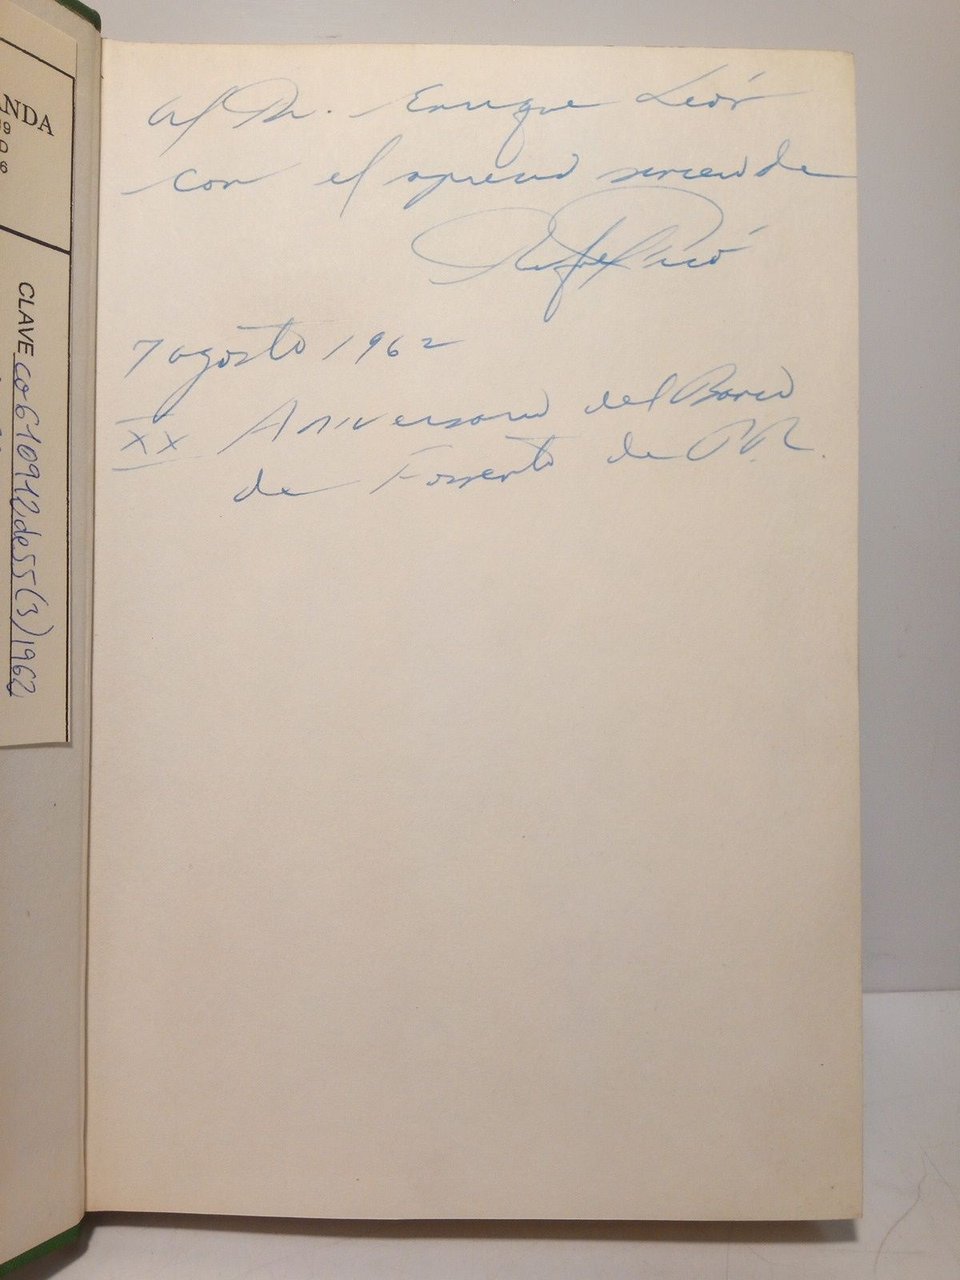 Al Dr. Enrique León
con el aprecio sincero de
Rafael Picó
7 agosto 1962
XX Aniversario del Banco
de Fomento de P.R.
ANDA
CLAVE co610912dess(3)1962